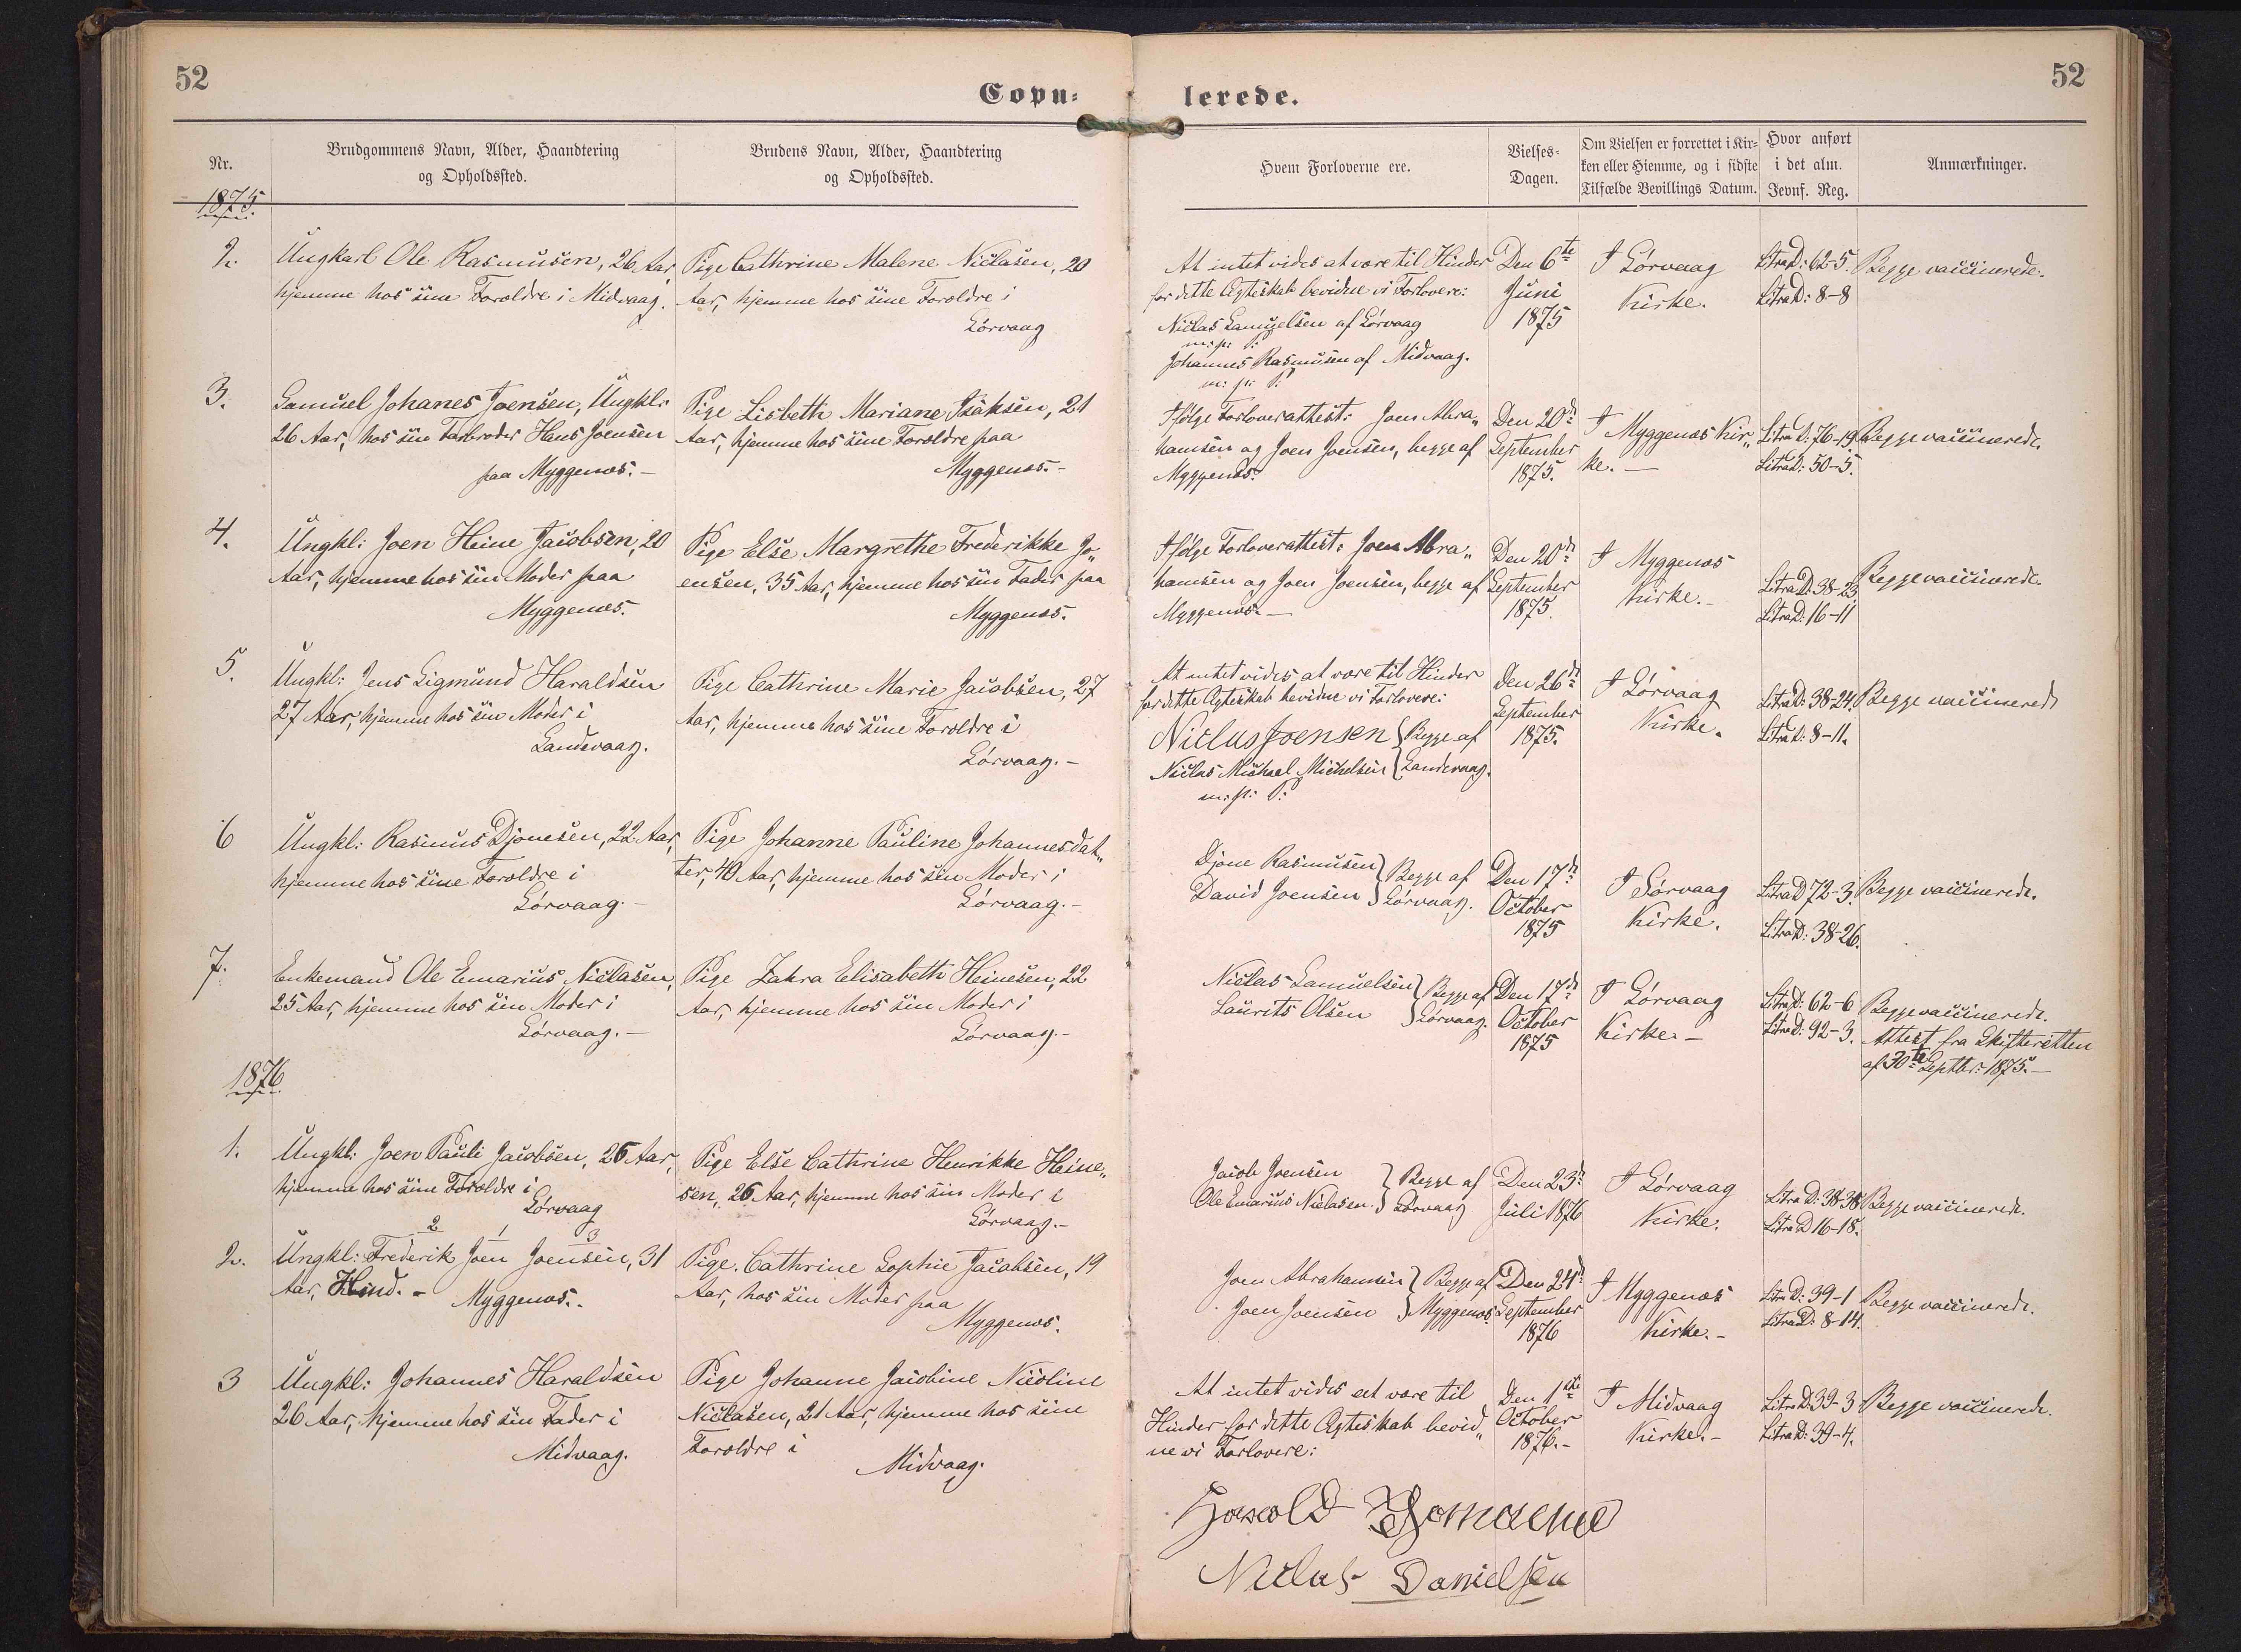 52
52
Copu=
lerede.
Nr.
Brudgommens Navn, Alder, Haandtering
og Opholdssted.
Brudens Navn, Alder, Haandtering
og Opholdssted.
Hvem Forloverne ere.
Vielses-
Dagen.
Om Vielsen er forrettet i Kir-
ken eller Hjemme, og i sidste
Tilfælde Bevillings Datum.
Hvor anført
i det alm.
Jevnf. Reg.
Anmærkninger.
1875.
2.
Ungkarl Ole Rasmusen, 26 Aar,
hjemme hos sine Forældre i Midvaag.
Pige Cathrine Malene Niclasen, 20
Aar, hjemme hos sine Forældre i
Sørvaag
At intet vides at være til Hinder
for dette Ægteskab bevidne vi Forlovere:
Niclas Samuelsen af Sørvaag
m: p: P:
Johannes Rasmusen af Midvaag.
m: p: P:
Den 6te
Juni
1875
I Sørvaag
Kirke.
Litra D: 62-5.
Litra D: 8-8
Begge vaccinerede.
3.
Samuel Johanes Joensen, Ungkl:
26 Aar, hos sin Farbroder Hans Joensen
paa Myggenæs. –
Pige Lisbeth Mariane Isaksen, 21
Aar, hjemme hos sine Forældre paa
Myggenæs. –
Ifølge Forloverattest: Joen Abra„
hamsen og Joen Joensen, begge af
Myggenæs.
Den 20de
September
1875.
I Myggenæs Kir„
ke. —
Litra D: 76-19.
Litra D: 50-5.
Begge vaccinerede.
4.
Ungkl: Joen Heine Jacobsen, 20
Aar, hjemme hos sin Moder paa
Myggenæs.
Pige Else Margrethe Frederikke Jo„
ensen, 35 Aar, hjemme hos sin Fader paa
Myggenæs.
Ifølge Forloverattest: Joen Abra„
hamsen og Joen Joensen, begge af
Myggenæs. —
Den 20de
September
1875.
I Myggenæs
Kirke. –
Litra D: 38-23.
Litra D: 16-11
Begge vaccinerede.
5.
Ungkl: Jens Sigmund Haraldsen
27 Aar, hjemme hos sin Moder i
Sandevaag.
Pige Cathrine Marie Jacobsen, 27
Aar, hjemme hos sine Forældre i
Sørvaag. –
At intet vides at være til Hinder
for dette Ægteskab bevidne vi Forlovere:
Niclas Joensen } Begge af
Niclas Michael Michelsen } Sandevaag.
m: p: P:
Den 26de
September
1875.
I Sørvaag
Kirke.
Litra D: 38-24.
Litra D: 8-11.
Begge vaccinerede
6
Ungkl: Rasmus Djonesen, 22 Aar,
hjemme hos sine Forældre i
Sørvaag. –
Pige Johanne Pauline Johannesdat„
ter, 40 Aar, hjemme hos sin Moder i
Sørvaag. –
Djone Rasmusen } Begge af
David Joensen } Sørvaag.
Den 17de
October
1875
I Sørvaag
Kirke.
Litra D 72-3.
Litra D: 38-26.
Begge vaccinerede.
7.
Enkemand Ole Emarius Niclasen,
25 Aar, hjemme hos sin Moder i
Sørvaag. –
Pige Zahra Elisabeth Heinesen, 22
Aar, hjemme hos sin Moder i
Sørvaag. –
Niclas Samuelsen } Begge af
Laurits Olsen } Sørvaag.
Den 17de
October
1875
I Sørvaag
Kirke. –
Litra D: 62-6
Litra D: 92-3.
Begge vaccinerede.
Attest fra Skifteretten
af 30te Septbr: 1875. –
1876
1.
Ungkl: Joen Pauli Jacobsen, 26 Aar,
hjemme hos sine Forældre i
Sørvaag
Pige Else Cathrine Henrikke Heine„
sen, 26 Aar, hjemme hos sin Moder i
Sørvaag. –
Jacob Joensen } Begge af
Ole Emarius Niclasen } Sørvaag
Den 23de
Juli 1876
I Sørvaag
Kirke.
Litra D: 38-38
Litra D 16-18.
Begge vaccinerede.
2 1 3
2.
Ungkl: Frederik Joen Joensen, 31
Aar, Huusmd. – Myggenæs. –
Pige Cathrine Sophie Jacobsen, 19
Aar, hos sin Moder paa
Myggenæs.
Joen Abrahamsen } Begge af
Joen Joensen } Myggenæs.
Den 24de
September
1876
I Myggenæs
Kirke. –
Litra D: 39-1
Litra D: 8-14.
Begge vaccinerede.
3
Ungkl: Johannes Haraldsen
26 Aar, hjemme hos sin Fader i
Midvaag.
Pige Johanne Jacobine Nicoline
Niclasen, 21 Aar, hjemme hos sine
Forældre i
Midvaag.
At intet vides at være til
Hinder for dette Ægteskab bevid„
ne vi Forlovere:
Niclas Danielsen
Den 1ste
October
1876. –
I Midvaag
Kirke. –
Litra D 39-3
Litra D: 39-4.
Begge vaccinerede.